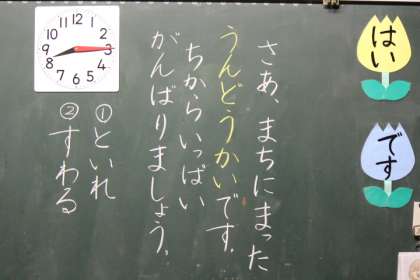 はい
です
さあ、まちにまった
うんどうかいです。
ちからいっぱい
がんばりましょう。
①といれ
②すわる
12
1
2
3
4
5
6
7
8
9
10
11